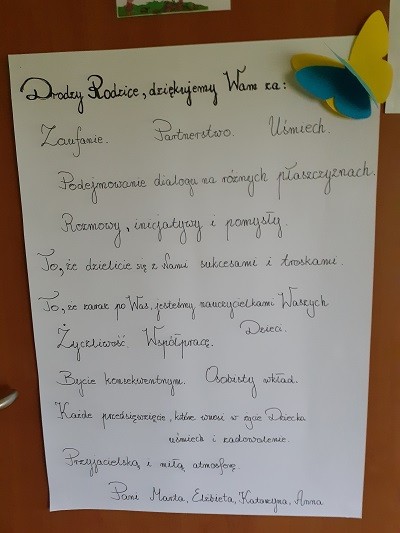 Drodzy Rodzice, dziękujemy Wam za:
Zaufanie. Partnerstwo. Uśmiech.
Podejmowanie dialogu na różnych płaszczyznach.
Rozmowy, inicjatywy i pomysły.
To, że dzielicie się z Nami sukcesami i troskami.
To, że zaraz po Was, jesteśmy nauczycielkami Waszych
Dzieci.
Życzliwość. Współpracę.
Bycie konsekwentnym. Osobisty wkład.
Każde przedsięwzięcie, które wnosi w życie Dziecka
uśmiech i zadowolenie.
Przyjacielską i miłą atmosferę.
Pani Marta, Elżbieta, Katarzyna, Anna